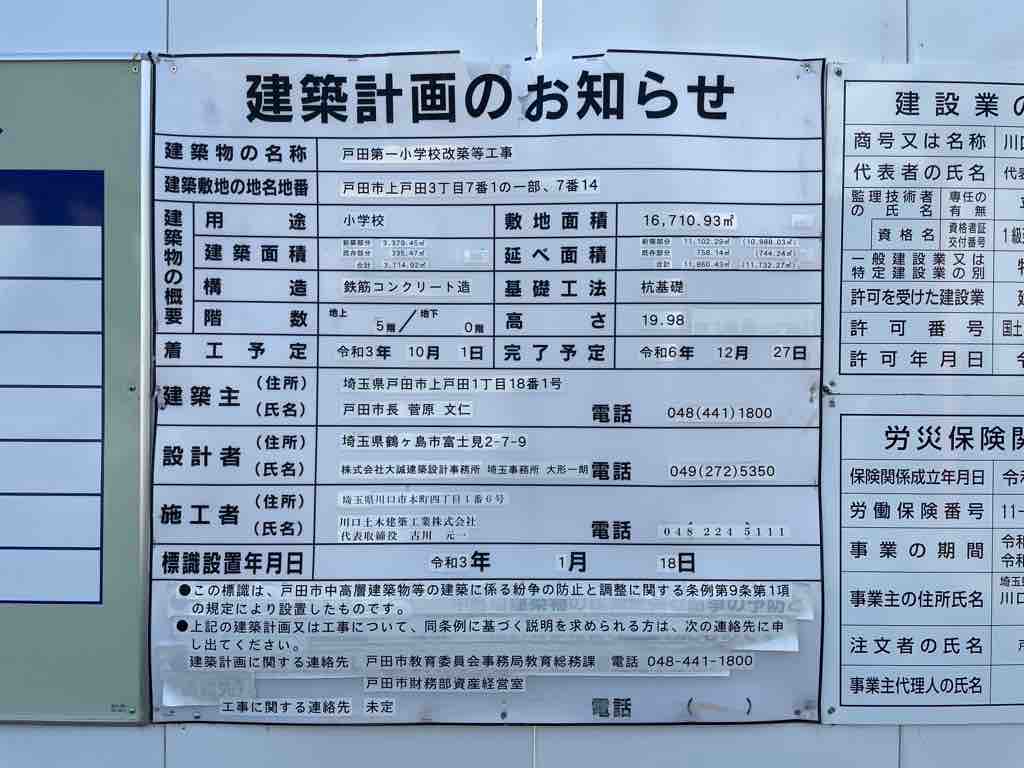 建築計画のお知らせ
建築物の名称 戸田第一小学校改築等工事
建築敷地の地名地番 戸田市上戸田3丁目7番1の一部、7番14
建築物の概要
用途 小学校 敷地面積 16,710.93㎡
建築面積 新築部分 3,379.45㎡ 既存部分 335.47㎡ 合計 3,714.92㎡
延べ面積 新築部分 11,102.29㎡ (10,988.03㎡) 既存部分 758.14㎡ (744.24㎡) 合計 11,860.43㎡ (11,732.27㎡)
構造 鉄筋コンクリート造 基礎工法 杭基礎
階数 地上 5階/地下 0階 高さ 19.98
着工予定 令和3年 10月 1日 完了予定 令和6年 12月 27日
建築主 (住所) 埼玉県戸田市上戸田1丁目18番1号
(氏名) 戸田市長 菅原 文仁 電話 048(441)1800
設計者 (住所) 埼玉県鶴ヶ島市富士見2-7-9
(氏名) 株式会社大誠建築設計事務所 埼玉事務所 大形一朗 電話 049(272)5350
施工者 (住所) 埼玉県川口市本町四丁目1番6号
(氏名) 川口土木建築工業株式会社
代表取締役 古川 元一 電話 048 224 5111
標識設置年月日 令和3年 1月 18日
●この標識は、戸田市中高層建築物等の建築に係る紛争の防止と調整に関する条例第9条第1項
の規定により設置したものです。
●上記の建築計画又は工事について、同条例に基づく説明を求められる方は、次の連絡先に申
し出てください。
建築計画に関する連絡先 戸田市教育委員会事務局教育総務課 電話 048-441-1800
戸田市財務部資産経営室
工事に関する連絡先 未定 電話 ( )
建設業の
商号又は名称 川口
代表者の氏名 代表
監理技術者の氏名 専任の有無
資格名 資格者証交付番号 1級
一般建設業又は特定建設業の別 特
許可を受けた建設業
許可番号 国土
許可年月日
労災保険関
保険関係成立年月日 令和
労働保険番号 11-
事業の期間 令和
令和
事業主の住所氏名 埼玉
川口
注文者の氏名
事業主代理人の氏名